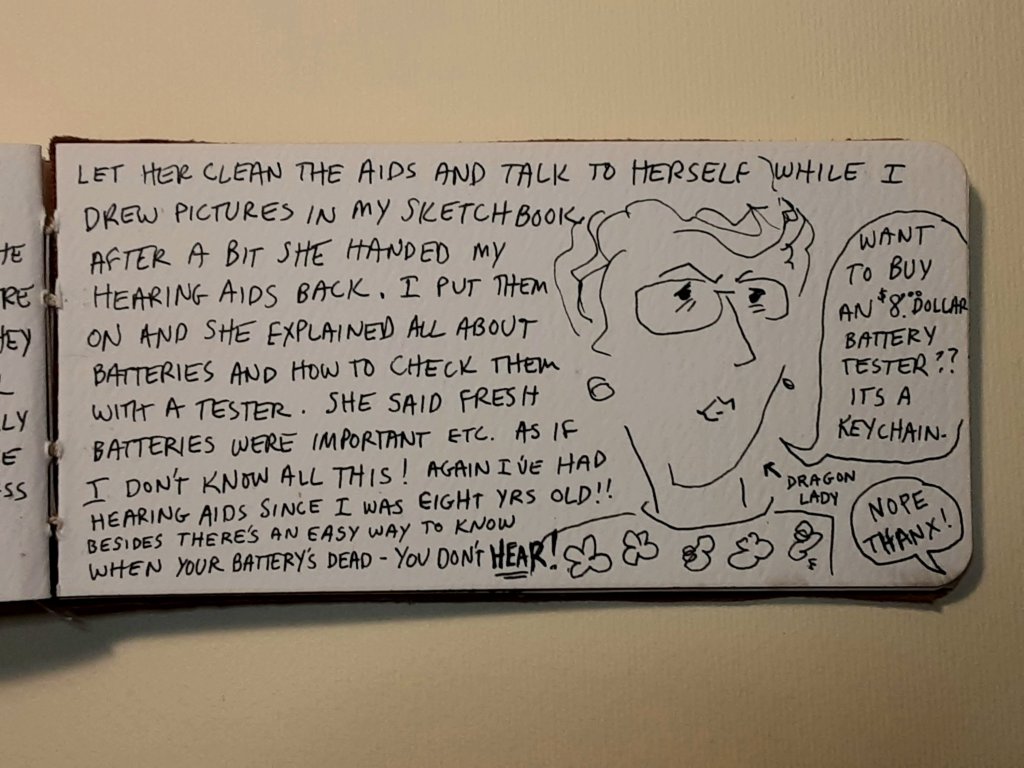 LET HER CLEAN THE AIDS AND TALK TO HERSELF WHILE I
DREW PICTURES IN MY SKETCHBOOK
AFTER A BIT SHE HANDED MY
HEARING AIDS BACK. I PUT THEM
ON AND SHE EXPLAINED ALL ABOUT
BATTERIES AND HOW TO CHECK THEM
WITH A TESTER. SHE SAID FRESH
BATTERIES WERE IMPORTANT ETC. AS IF
I DON'T KNOW ALL THIS! AGAIN I'VE HAD
HEARING AIDS SINCE I WAS EIGHT YRS OLD!!
BESIDES THERE'S AN EASY WAY TO KNOW
WHEN YOUR BATTERY'S DEAD - YOU DON'T HEAR!
WANT
TO BUY
AN $8.00 DOLLAR
BATTERY
TESTER??
ITS A
KEYCHAIN.
DRAGON
LADY
NOPE
THANX!